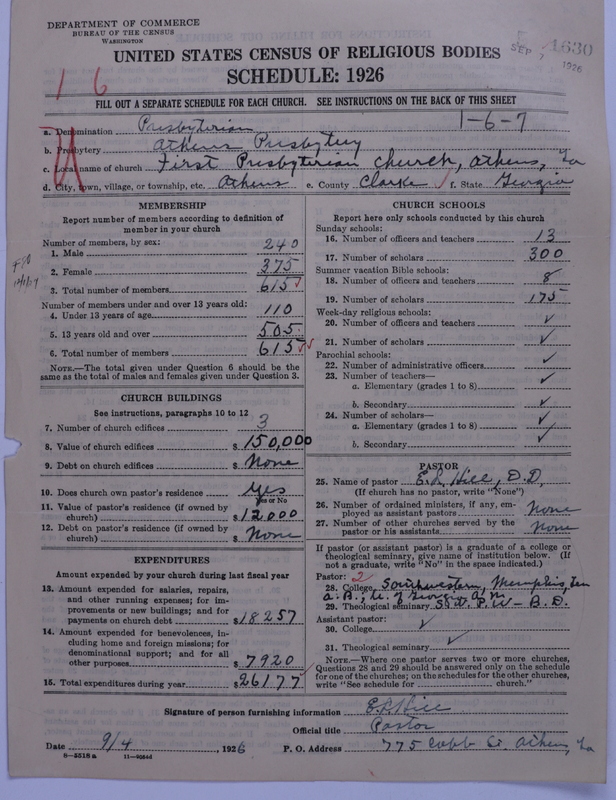 DEPARTMENT OF COMMERCE
BUREAU OF THE CENSUS
WASHINGTON
SEP 7 1926
1630
UNITED STATES CENSUS OF RELIGIOUS BODIES
SCHEDULE: 1926
1 6
FILL OUT A SEPARATE SCHEDULE FOR EACH CHURCH. SEE INSTRUCTIONS ON THE BACK OF THIS SHEET
1-6-7
a. Denomination Presbyterian
b. Presbytery Athens Presbytery
c. Local name of church First Presbyterian Church, Athens, Ga
d. City, town, village, or township, etc. Athens e. County Clarke f. State Georgia
MEMBERSHIP
Report number of members according to definition of
member in your church
Number of members, by sex:
1. Male 240
2. Female 375
3. Total number of members 615
Number of members under and over 13 years old:
4. Under 13 years of age 110
5. 13 years old and over 505
6. Total number of members 615
NOTE.—The total given under Question 6 should be the
same as the total of males and females given under Question 3.
CHURCH BUILDINGS
See instructions, paragraphs 10 to 12
7. Number of church edifices 3
8. Value of church edifices $150,000
9. Debt on church edifices $ None
10. Does church own pastor's residence Yes
Yes or No
11. Value of pastor's residence (if owned by
church) $12000
12. Debt on pastor's residence (if owned by
church) $ None
EXPENDITURES
Amount expended by your church during last fiscal year
13. Amount expended for salaries, repairs,
and other running expenses; for im-
provements or new buildings; and for
payments on church debt $18257
14. Amount expended for benevolences, in-
cluding home and foreign missions; for
denominational support; and for all
other purposes $7920
15. Total expenditures during year $26177
CHURCH SCHOOLS
Report here only schools conducted by this church
Sunday schools:
16. Number of officers and teachers 13
17. Number of scholars 300
Summer vacation Bible schools:
18. Number of officers and teachers 8
19. Number of scholars 175
Week-day religious schools:
20. Number of officers and teachers ✓
21. Number of scholars ✓
Parochial schools:
22. Number of administrative officers ✓
23. Number of teachers—
a. Elementary (grades 1 to 8) ✓
b. Secondary ✓
24. Number of scholars—
a. Elementary (grades 1 to 8) ✓
b. Secondary ✓
PASTOR
25. Name of pastor E.L. Hill, D.D.
(If church has no pastor, write "None")
26. Number of ordained ministers, if any, em-
ployed as assistant pastors None
27. Number of other churches served by the
pastor or his assistants None
If pastor (or assistant pastor) is a graduate of a college or
theological seminary, give name of institution below. (If
not a graduate, write "No" in the space indicated.)
Pastor: 2
28. College Southwestern, Memphis, Ten
A.B.; U. of Georgia A.M.
29. Theological seminary S.W.P.U - B.D.
Assistant pastor:
30. College ✓
31. Theological seminary ✓
NOTE.—Where one pastor serves two or more churches,
Questions 28 and 29 should be answered only on the schedule
for one of the churches; on the schedules for the other churches,
write "See schedule for church."
Signature of person furnishing information E.L. Hill
Official title Pastor
Date 9/4, 1926 P. O. Address 775 Cobb St Athens, Ga
8—5518 a